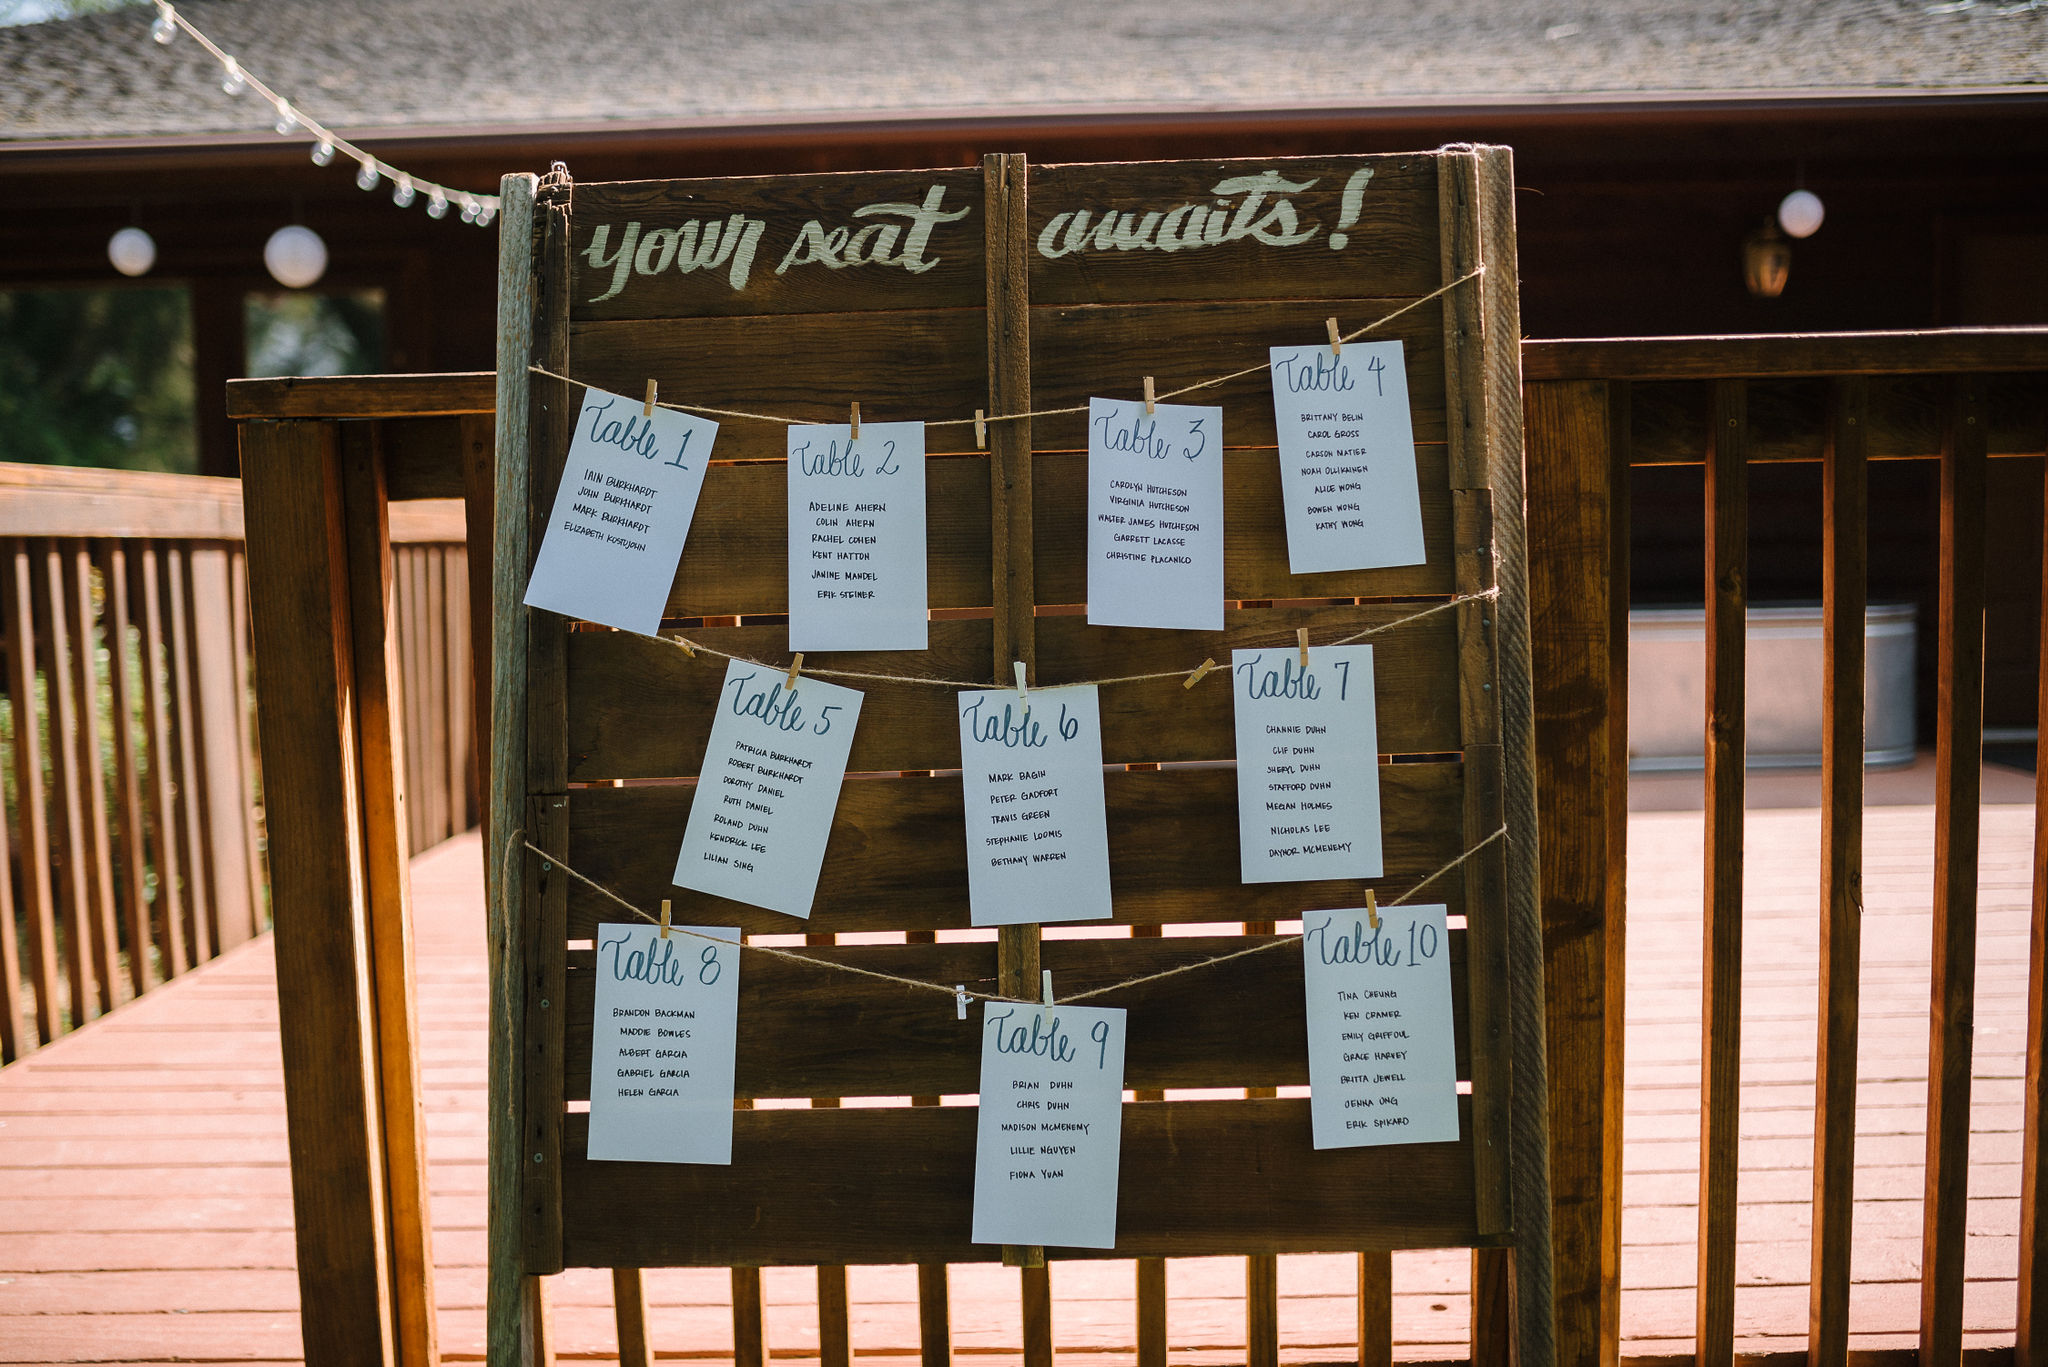 your seat awaits!
Table 1
IAIN BURKHARDT
JOHN BURKHARDT
MARK BURKHARDT
ELIZABETH KOSTUJOHN
Table 2
ADELINE AHERN
COLIN AHERN
RACHEL COHEN
KENT HATTON
JANINE MANDEL
ERIK STEINER
Table 3
CAROLYN HUTCHESON
VIRGINIA HUTCHESON
WALTER JAMES HUTCHESON
GARRETT LACASSE
CHRISTINE PLACANICO
Table 4
BRITTANY BELIN
CAROL GROSS
CARSON MATIER
NOAH OLLIKAINEN
ALICE WONG
BOWEN WONG
KATHY WONG
Table 5
PATRICIA BURKHARDT
ROBERT BURKHARDT
DOROTHY DANIEL
RUTH DANIEL
ROLAND DUHN
KENDRICK LEE
LILIAN SING
Table 6
MARK BAGIN
PETER GADFORT
TRAVIS GREEN
STEPHANIE LOOMIS
BETHANY WARREN
Table 7
CHANNIE DUHN
CLIF DUHN
SHERYL DUHN
STAFFORD DUHN
MEGAN HOLMES
NICHOLAS LEE
DAYNOR MCMENEMY
Table 8
BRANDON BACKMAN
MADDIE BOWLES
ALBERT GARCIA
GABRIEL GARCIA
HELEN GARCIA
Table 9
BRIAN DUHN
CHRIS DUHN
MADISON MCMENEMY
LILLIE NGUYEN
FIONA YUAN
Table 10
TINA CHEUNG
KEN CRAMER
EMILY GRIFFOUL
GRACE HARVEY
BRITTA JEWELL
JENNA ONG
ERIK SPIKARD